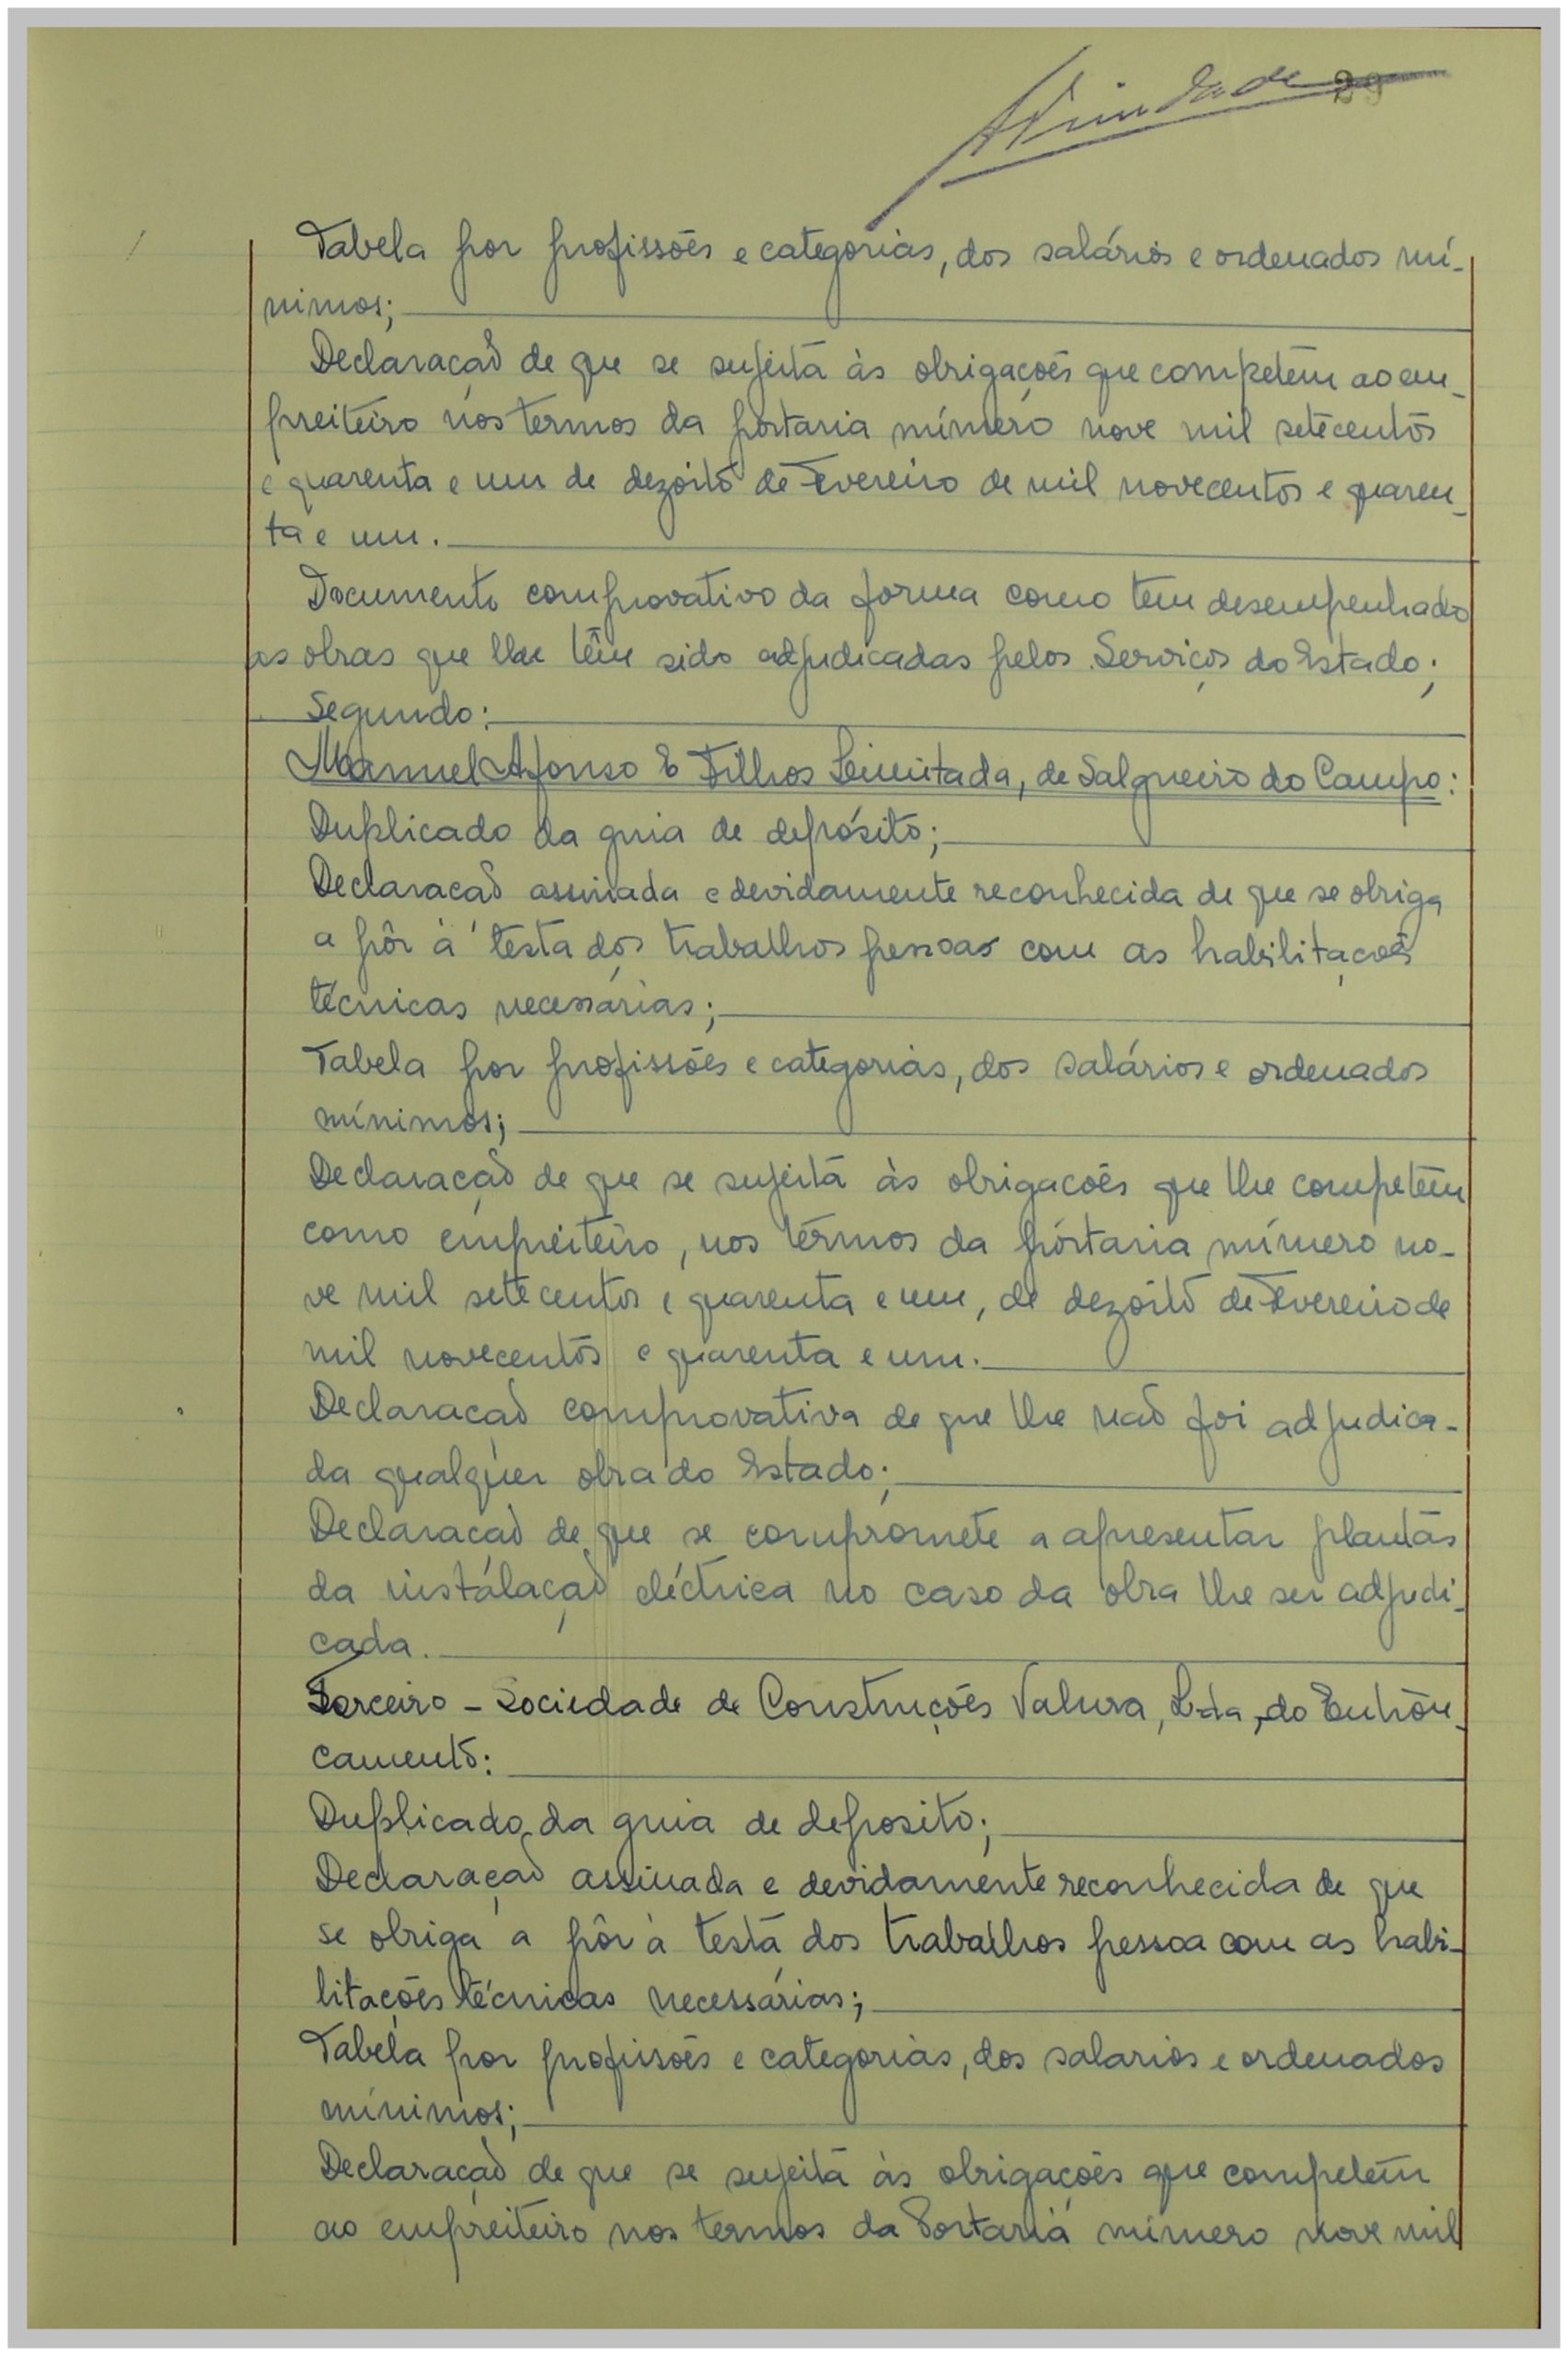 29
Trindade
Tabela por profissões e categorias, dos salários e ordenados mí-
nimos;
Declaração de que se sujeita às obrigações que competem ao em-
preiteiro nos termos da portaria número nove mil setecentos
e quarenta e um de dezoito de Fevereiro de mil novecentos e quaren-
ta e um.
Documento comprovativo da forma como tem desempenhado
as obras que lhe têm sido adjudicadas pelos Serviços do Estado;
Segundo:
Manuel Afonso & Filhos Limitada, de Salgueiro do Campo:
Duplicado da guia de depósito;
Declaração assinada e devidamente reconhecida de que se obriga
a pôr à testa dos trabalhos pessoas com as habilitações
técnicas necessárias;
Tabela por profissões e categorias, dos salários e ordenados
mínimos;
Declaração de que se sujeita às obrigações que lhe competem
como empreiteiro, nos termos da portaria número no-
ve mil setecentos e quarenta e um, de dezoito de Fevereiro de
mil novecentos e quarenta e um.
Declaração comprovativa de que lhe não foi adjudica-
da qualquer obra do Estado;
Declaração de que se compromete a apresentar plantas
da instalação eléctrica no caso da obra lhe ser adjudi-
cada.
Terceiro - Sociedade de Construções Valura, Lda, do Entron-
camento:
Duplicado da guia de deposito;
Declaração assinada e devidamente reconhecida de que
se obriga a pôr à testa dos trabalhos pessoa com as habi-
litações técnicas necessárias;
Tabela por profissões e categorias, dos salarios e ordenados
mínimos;
Declaração de que se sujeita às obrigações que competem
ao empreiteiro nos termos da Portaria número nove mil